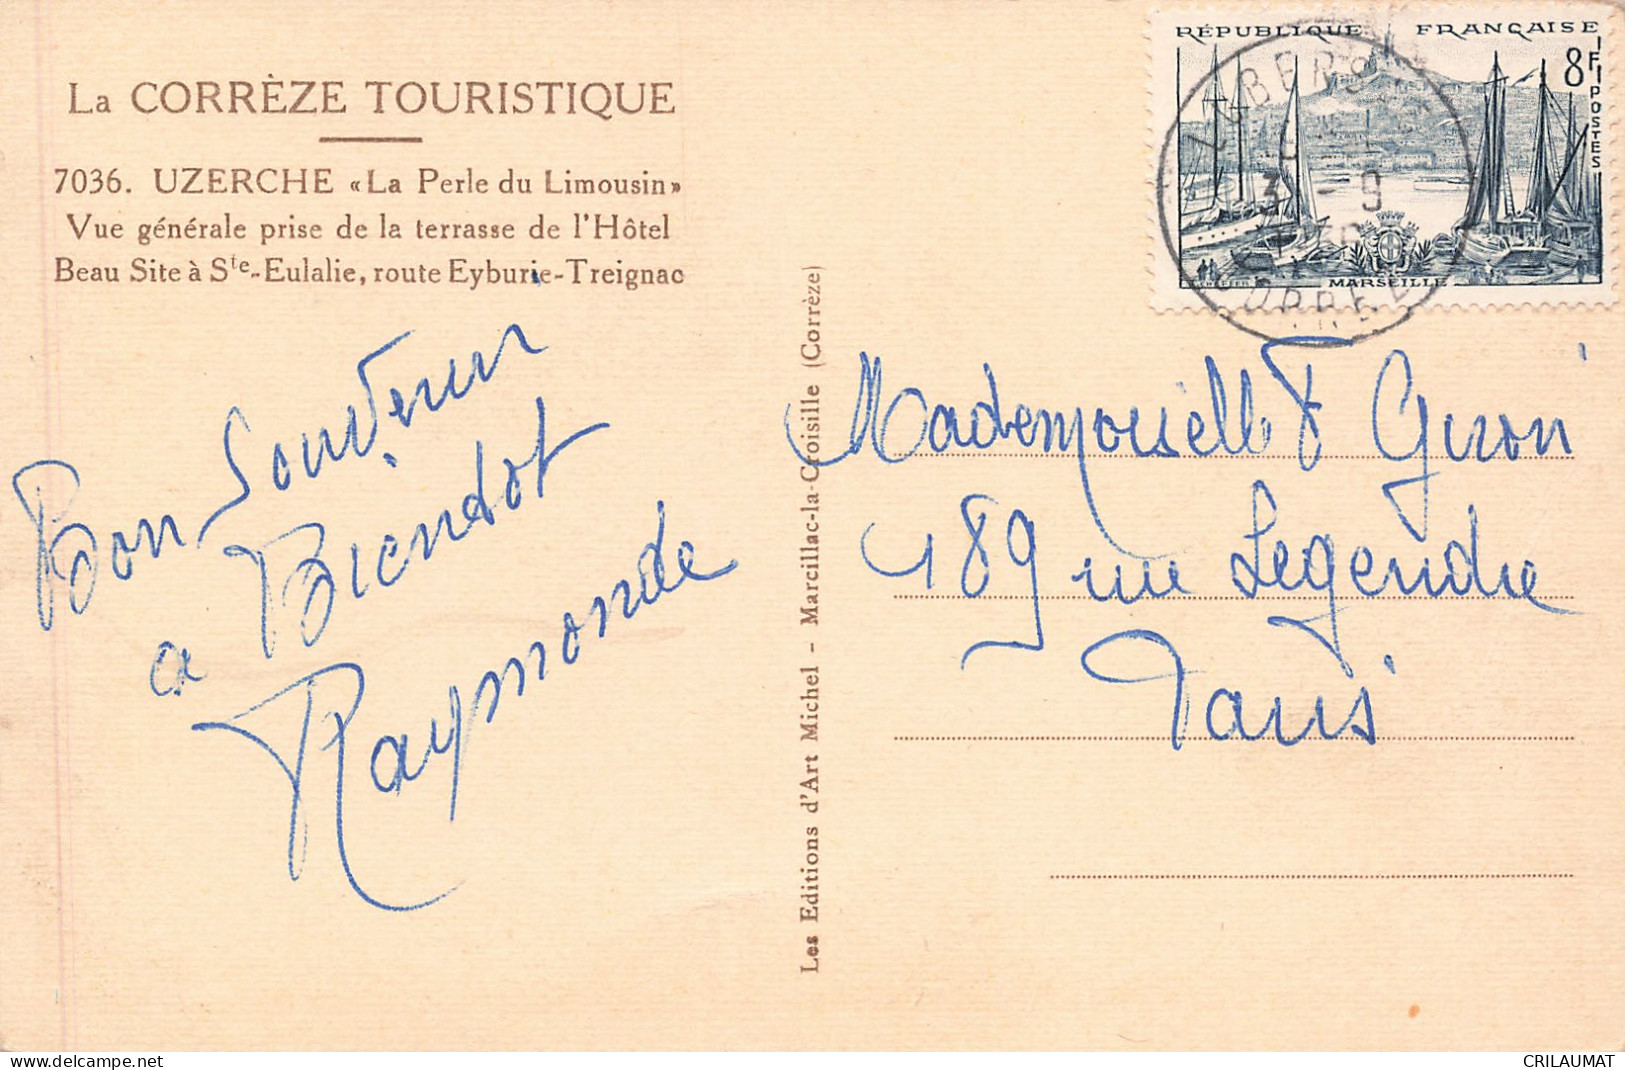 La CORRÈZE TOURISTIQUE
7036. UZERCHE «La Perle du Limousin»
Vue générale prise de la terrasse de l'Hôtel
Beau Site à Ste-Eulalie, route Eyburie-Treignac
Bon Souvenir
a Bientot
Raymonde
Les Editions d'Art Michel - Marcillac-la-Croisille (Corrèze)
RÉPUBLIQUE FRANÇAISE
8F
POSTES
MARSEILLE
3 - 9
CORRÈZE
Mademoiselle F Giron
189 rue Legendre
Paris
delcampe.net
CRILAUMAT